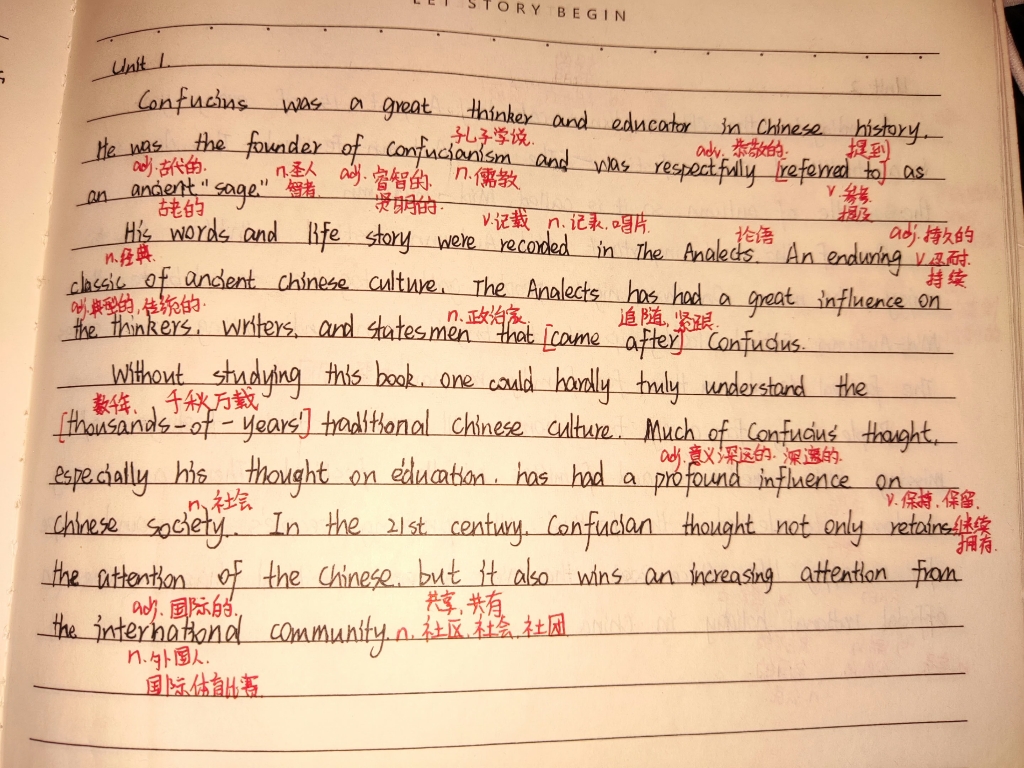 LET STORY BEGIN
Unit 1.
Confucius was a great thinker and educator in Chinese history.
孔子学说. adv. 恭敬的. 提到
He was the founder of confucianism and was respectfully [referred to] as
adj. 古代的. n.圣人 智者. adj. 睿智的. 贤明的. n. 儒教 v. 参考. 提及
an ancient "sage."
古老的
v.记载 n. 记录. 唱片. 论语 adj. 持久的
His words and life story were recorded in The Analects. An enduring v.忍耐. 持续
n. 经典.
classic of ancient Chinese culture. The Analects has had a great influence on
adj. 典型的, 传统的. n. 政治家 追随, 紧跟.
the thinkers. writers. and statesmen that [came after] Confucius.
Without studying this book. one could hardly truly understand the
数千年. 千秋万载
[thousands-of-years'] traditional Chinese culture. Much of Confucius' thought,
adj. 意义深远的. 深邃的.
especially his thought on education. has had a profound influence on
n. 社会 v. 保持. 保留.
Chinese society.. In the 21st century. Confucian thought not only retains 继续 拥有.
the attention of the Chinese. but it also wins an increasing attention from
adj. 国际的. 共享, 共有
the international community. n. 社区. 社会. 社团
n. 外国人.
国际体育比赛.